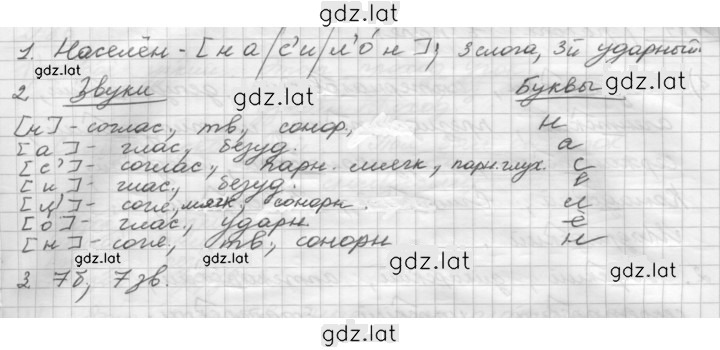 gdz.lat
1. Населён - [н а / с' и / л' о́ н ]; 3 слога, 3й ударный
gdz.lat
2. Звуки gdz.lat Буквы
[н] - соглас., тв., сонор., н
[а] - глас., безуд. а
[с'] - соглас., парн. мягк., парн. глух. с
[и] - глас., безуд. е
[л'] - согл., мягк., сонорн. л
[о] - глас., ударн ё
[н] - согл., тв., сонорн н
gdz.lat gdz.lat gdz.lat gdz.lat
3 7б, 7 зв.
gdz.lat